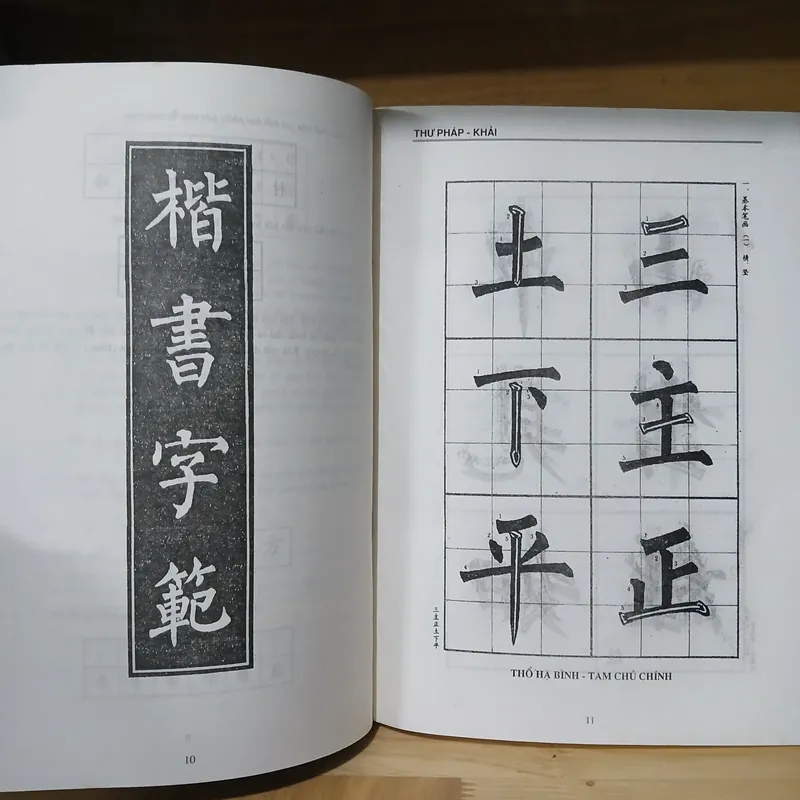 楷書字範
10
THƯ PHÁP - KHẢI
一. 基本笔画 (一) 横、竖
三主正
土下平
三主正土下平
THỔ HẠ BÌNH - TAM CHỦ CHÍNH
11